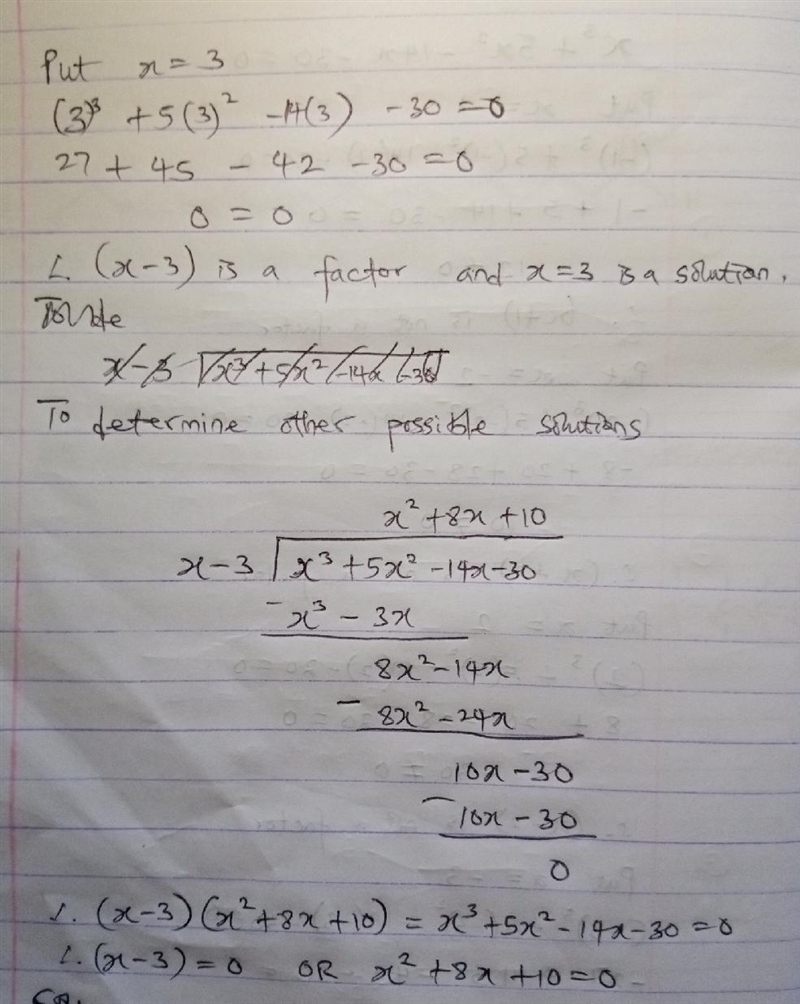 Put x = 3
(3)³ + 5(3)² - 14(3) - 30 = 0
27 + 45 - 42 - 30 = 0
0 = 0
∴ (x-3) is a factor and x = 3 is a solution.
x - 3 x³ + 5x² - 14x - 30
To determine other possible solutions
x² + 8x + 10
x - 3 √x³ + 5x² - 14x - 30
- x³ - 3x
8x² - 14x
- 8x² - 24x
10x - 30
- 10x - 30
0
∴ (x-3)(x² + 8x + 10) = x³ + 5x² - 14x - 30 = 0
∴ (x-3) = 0 OR x² + 8x + 10 = 0